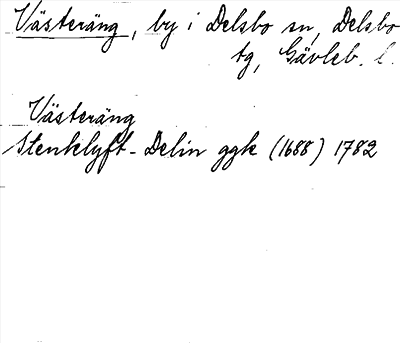 Västeräng, by i Delsbo sn, Delsbo
tg, Gävleb. l.
Västeräng
Stenklyft-Delin ggk (1688) 1782